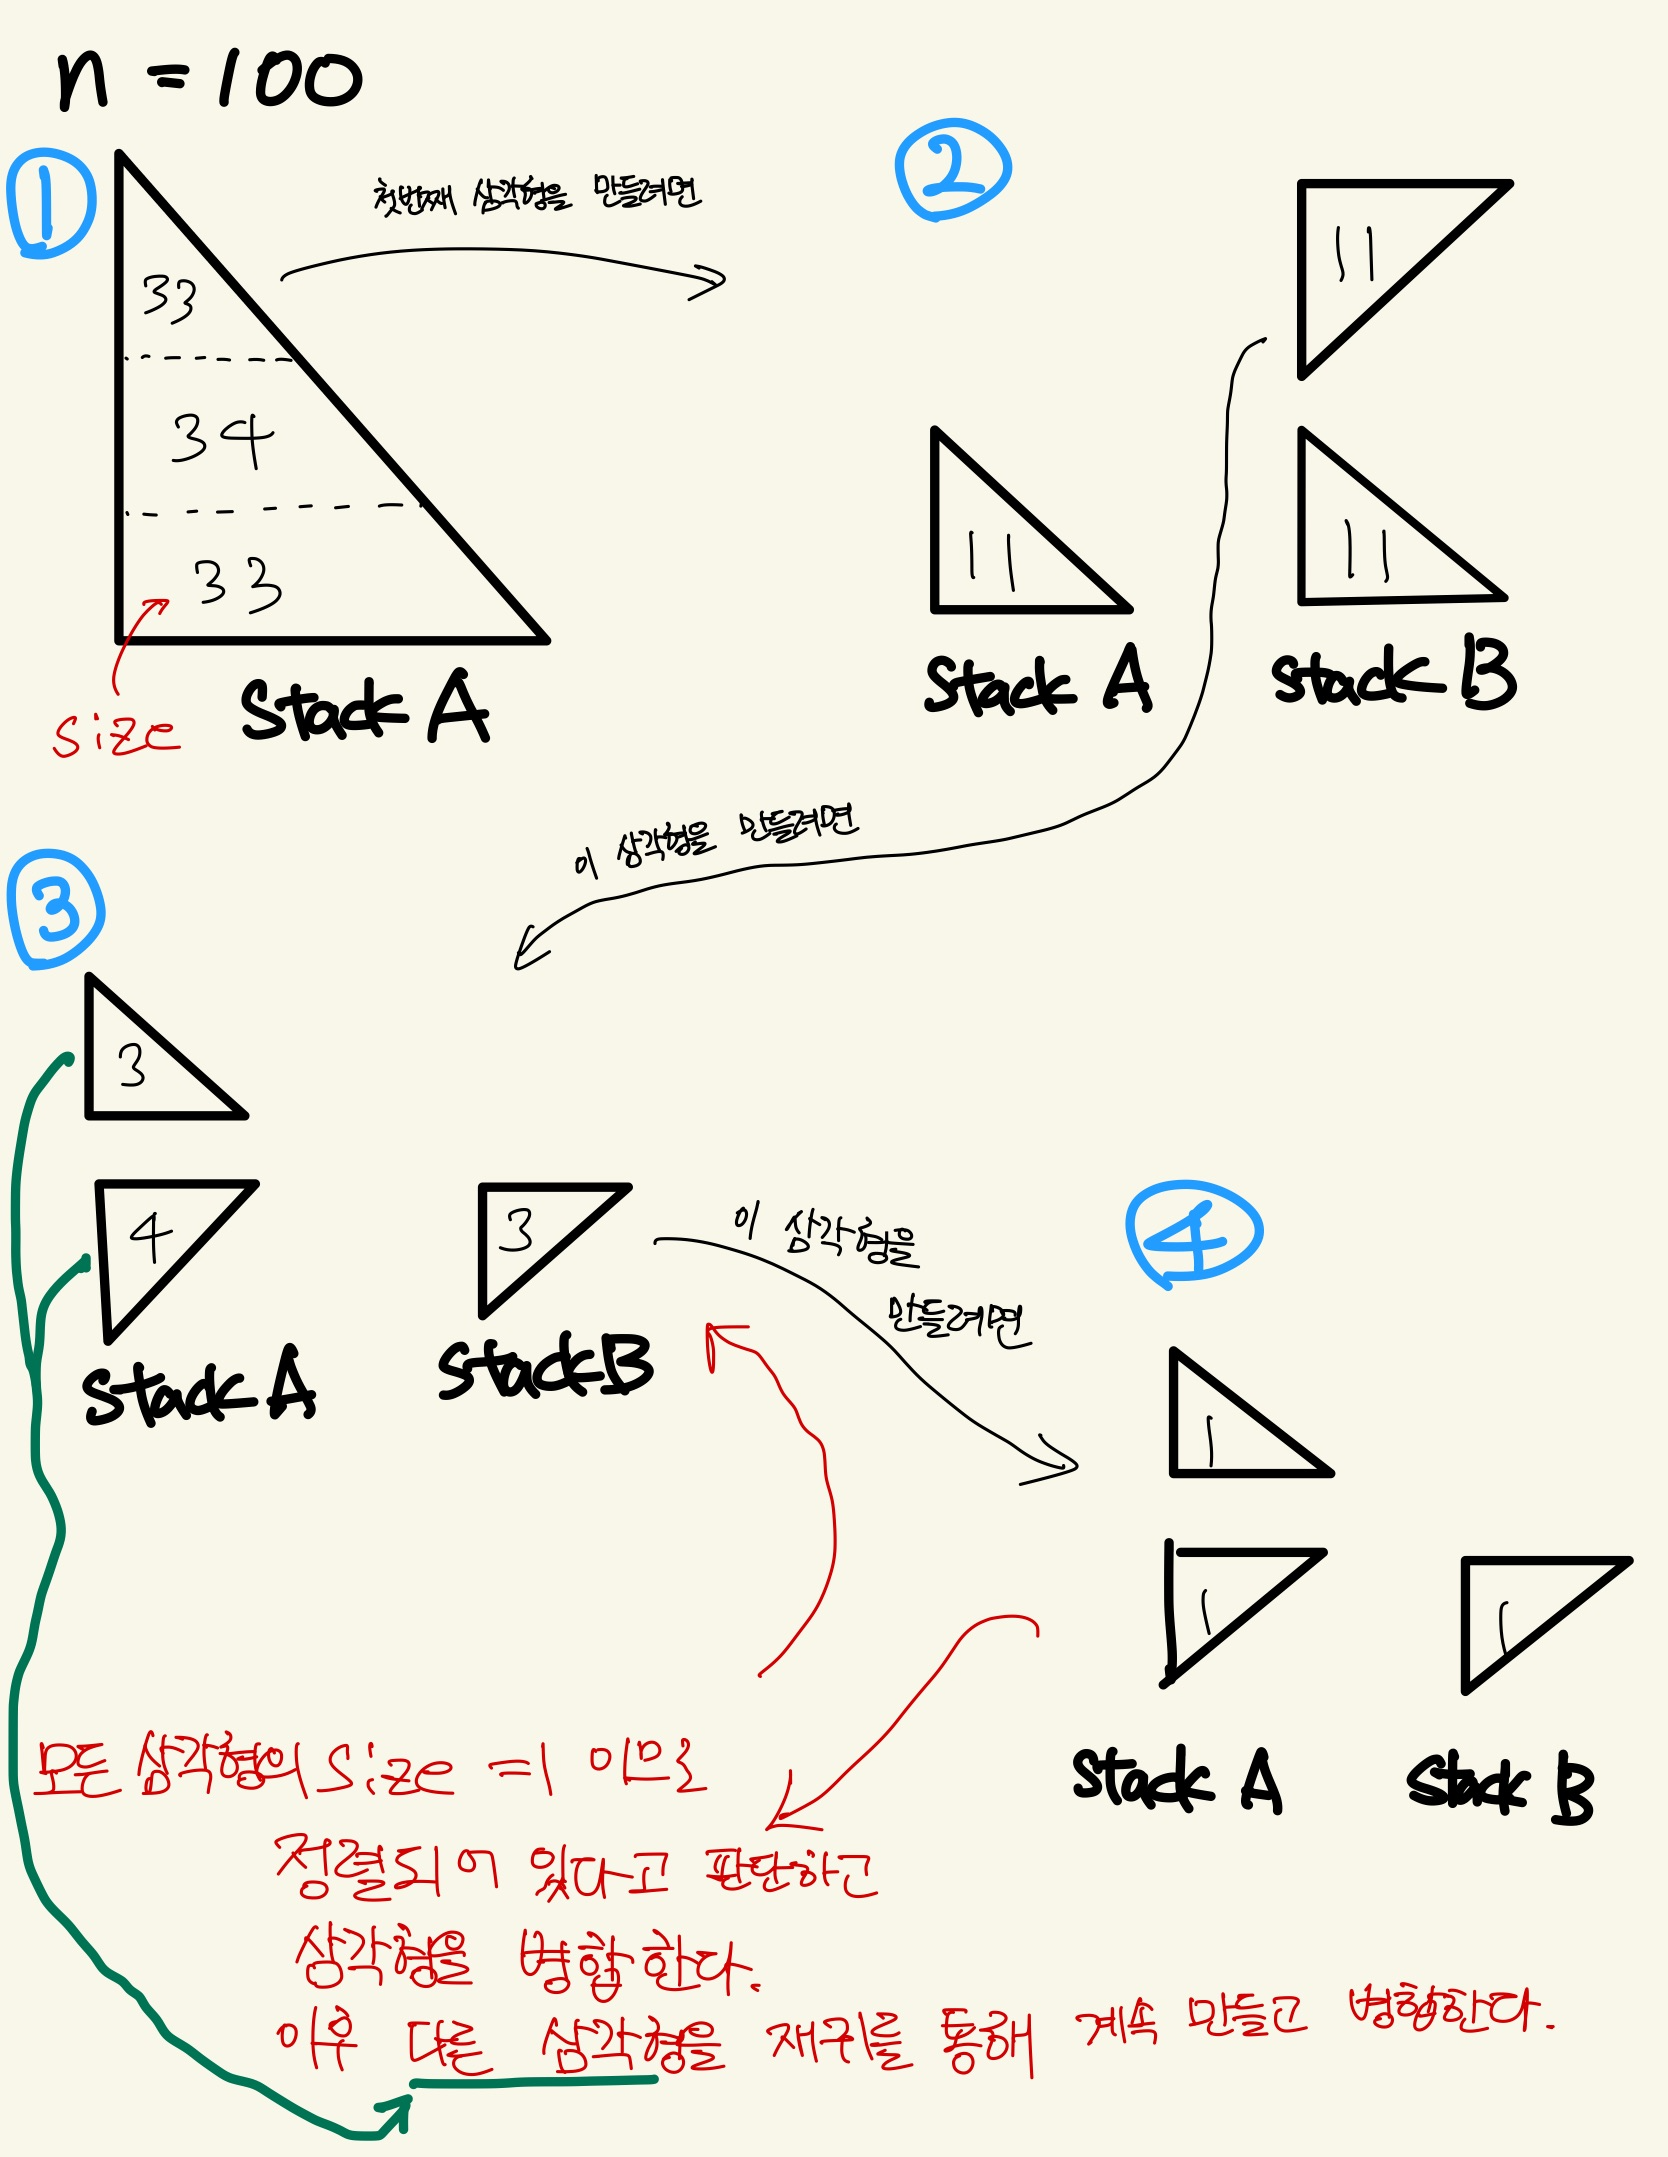 n = 100
①
첫번째 삼각형을 만들려면
33
34
33
size
stack A
②
11
11
11
stack A
stack B
이 삼각형을 만들려면
③
3
4
3
stack A
stack B
이 삼각형을
만들려면
④
1
1
1
stack A
stack B
모든 삼각형이 size = 1 이므로
정렬되어 있다고 판단하고
삼각형을 병합한다.
이후 다른 삼각형을 재귀를 통해 계속 만들고 병합한다.